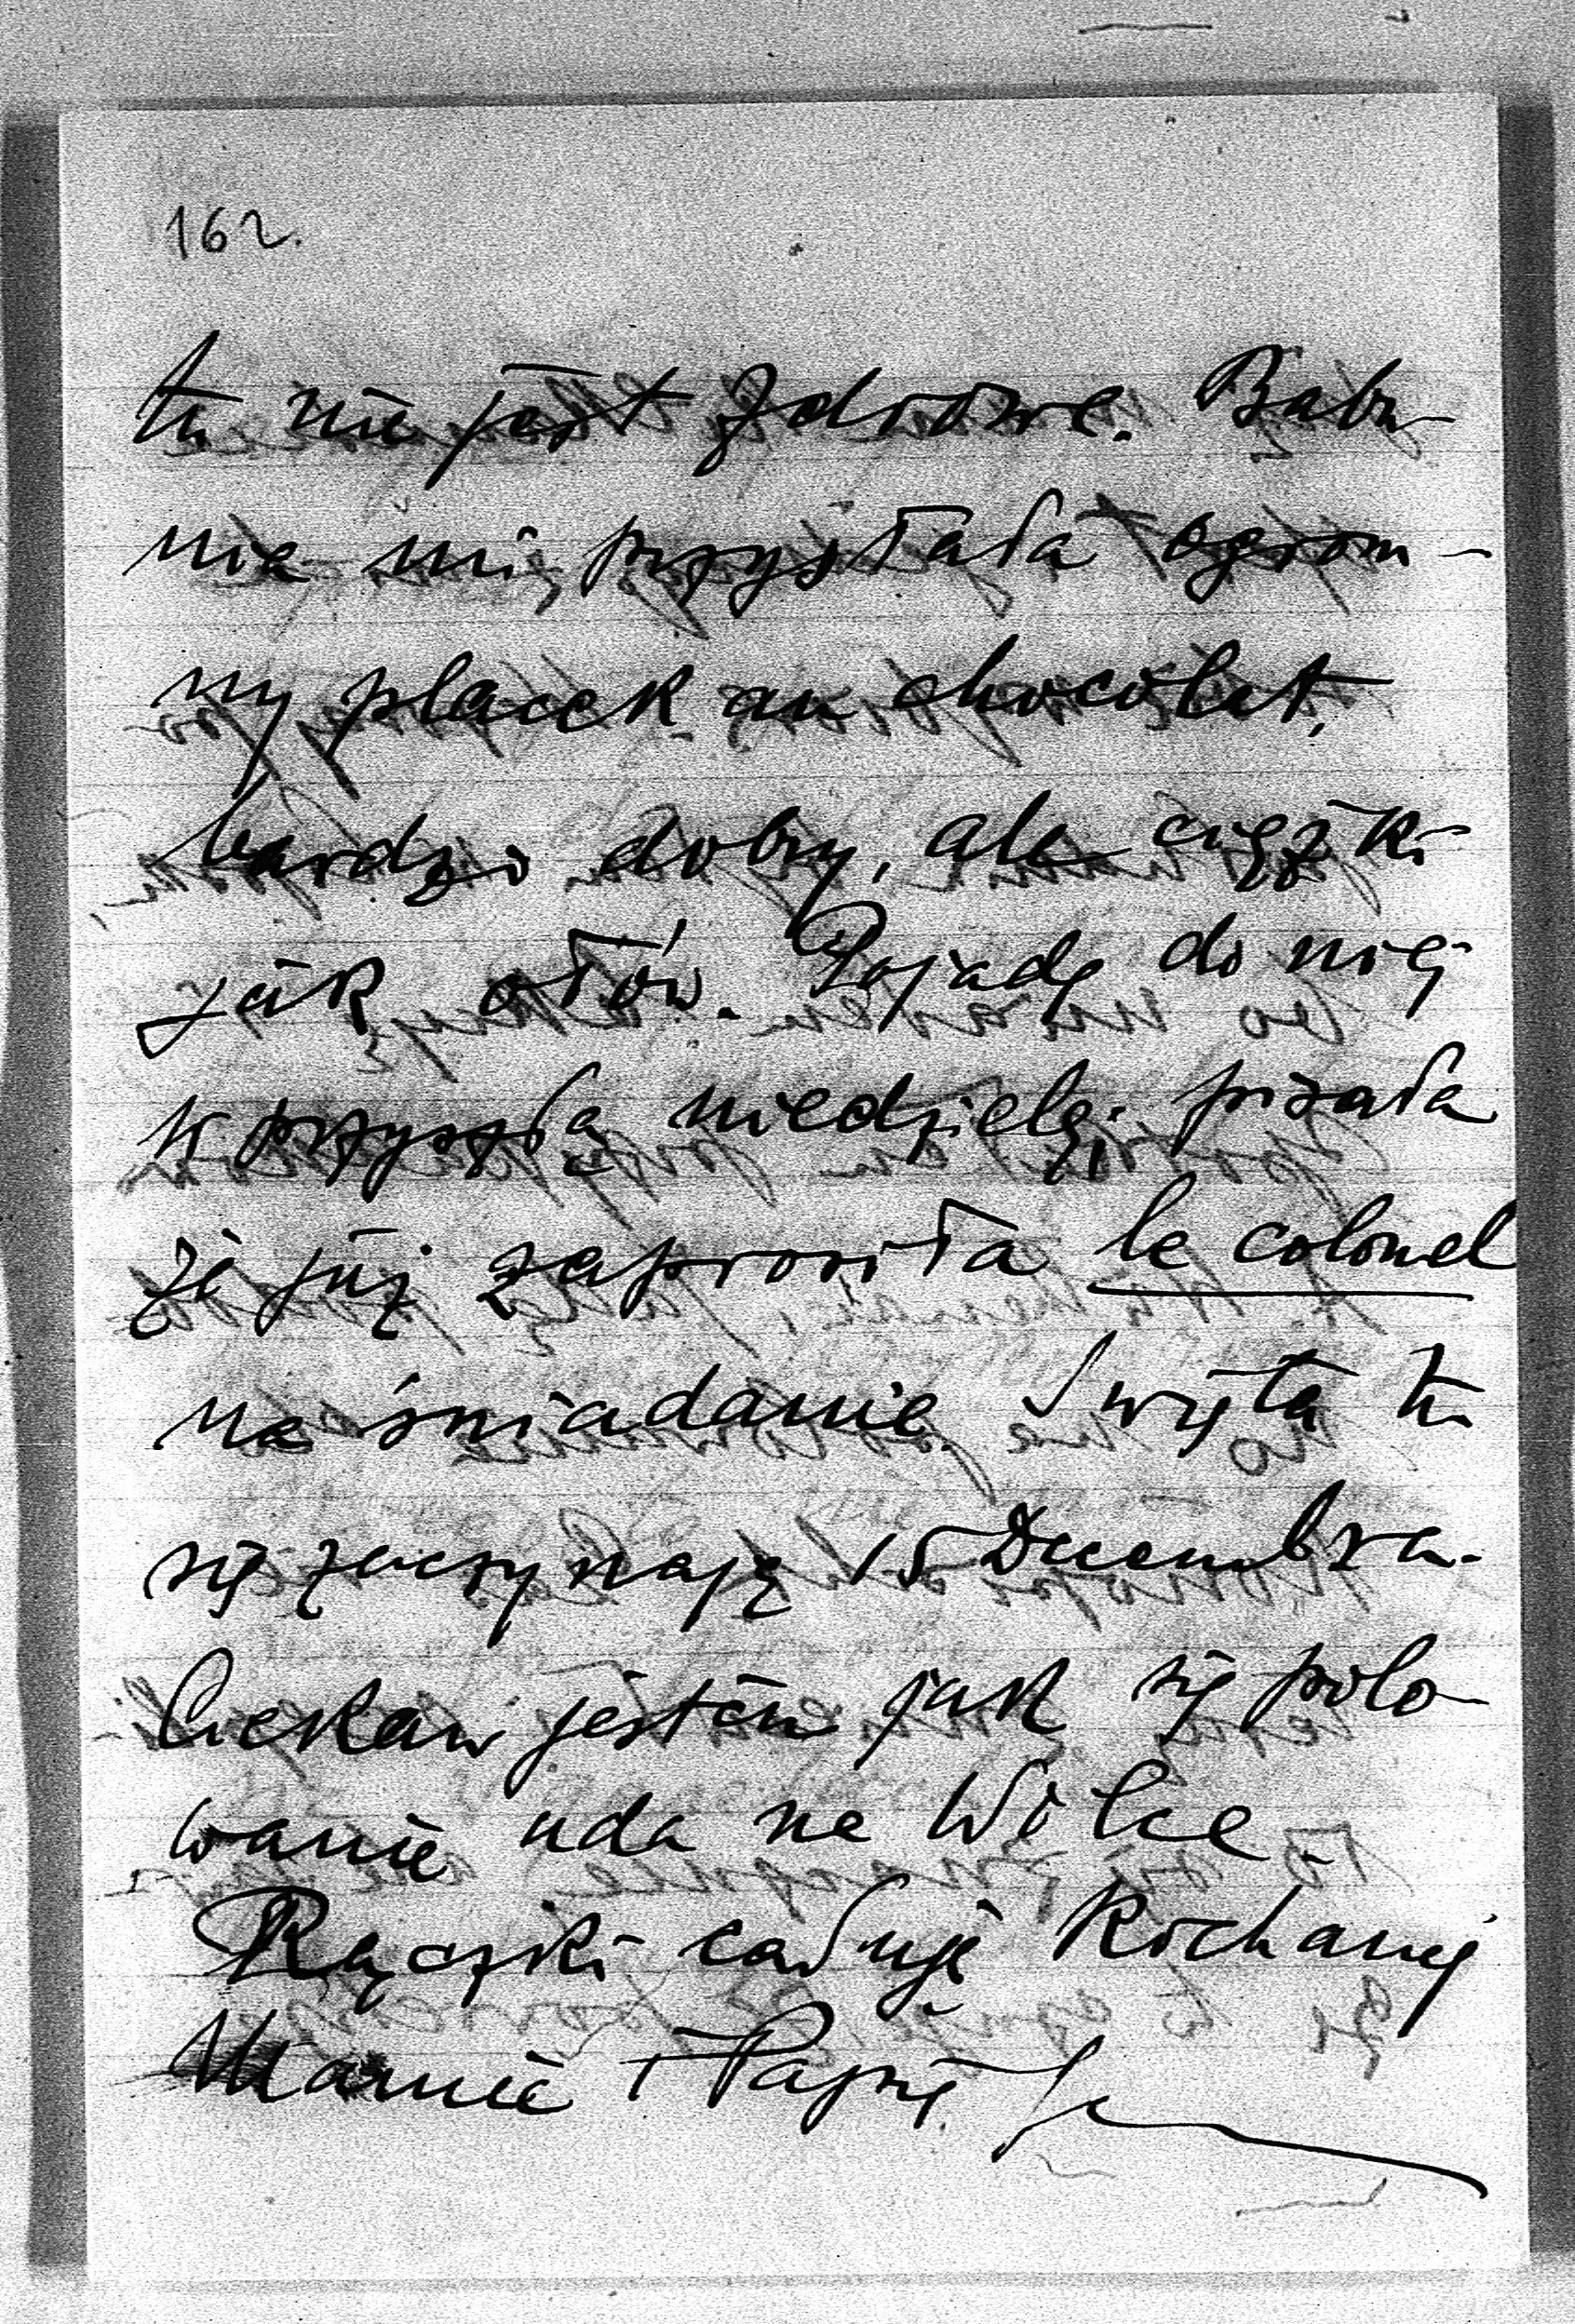 162.
tu nie jest zdrowe. Babu-
nia mi przysłała ogrom-
ny placek au chocolat,
bardzo dobry, ale ciężki
jak ołów. Pojadę do niej
w przyszłą niedzielę; pisała
że już zaprosiła le colonel
na śniadanie. Święta tu
się zaczynają 15 Decembra.
Ciekaw jestem jak się polo-
wanie uda na Wólce.
Rączki całuję Kochanej
Mamie i Papię